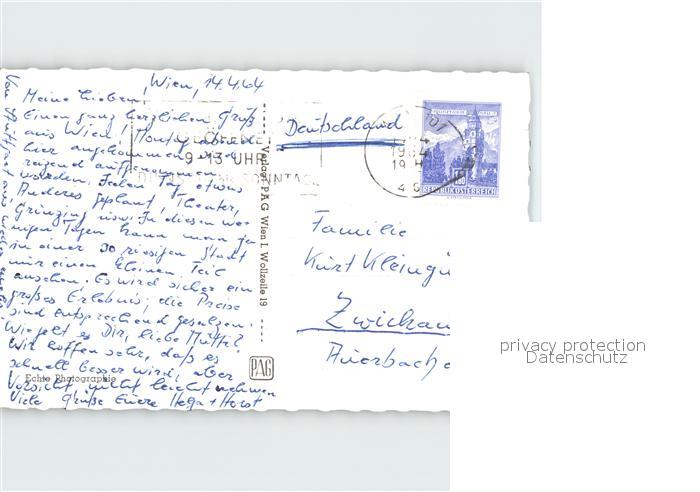 Wien, 14.4.64
Meine Lieben,
Einen ganz herzlichen Gruß
aus Wien! Montagabend
hier angekommen u.
reizend aufgenommen
worden. Jeden Tag etwas
Anderes geplant, Theater,
Grinzing usw. In diesen we-
nigen Tagen kann man ja
in einer so riesigen Stadt
nur einen kleinen Teil
ansehen. Es wird sicher ein
großes Erlebnis, die Preise
sind entsprechend gesalzen.
Wie geht es Dir, liebe Mutter?
Wir hoffen sehr, daß es
schnell besser wird, aber
Vorsicht, nicht leicht nehmen
Viele Grüße Eure Helga + Horst
Echte Photographie
Verlag PAG Wien I. Wollzeile 19
PAG
9-13 UHR
SONNTAG
Deutschland
REPUBLIK ÖSTERREICH
Familie
Kurt Kleingü
Zwickau
Auerbach
privacy protection
Datenschutz